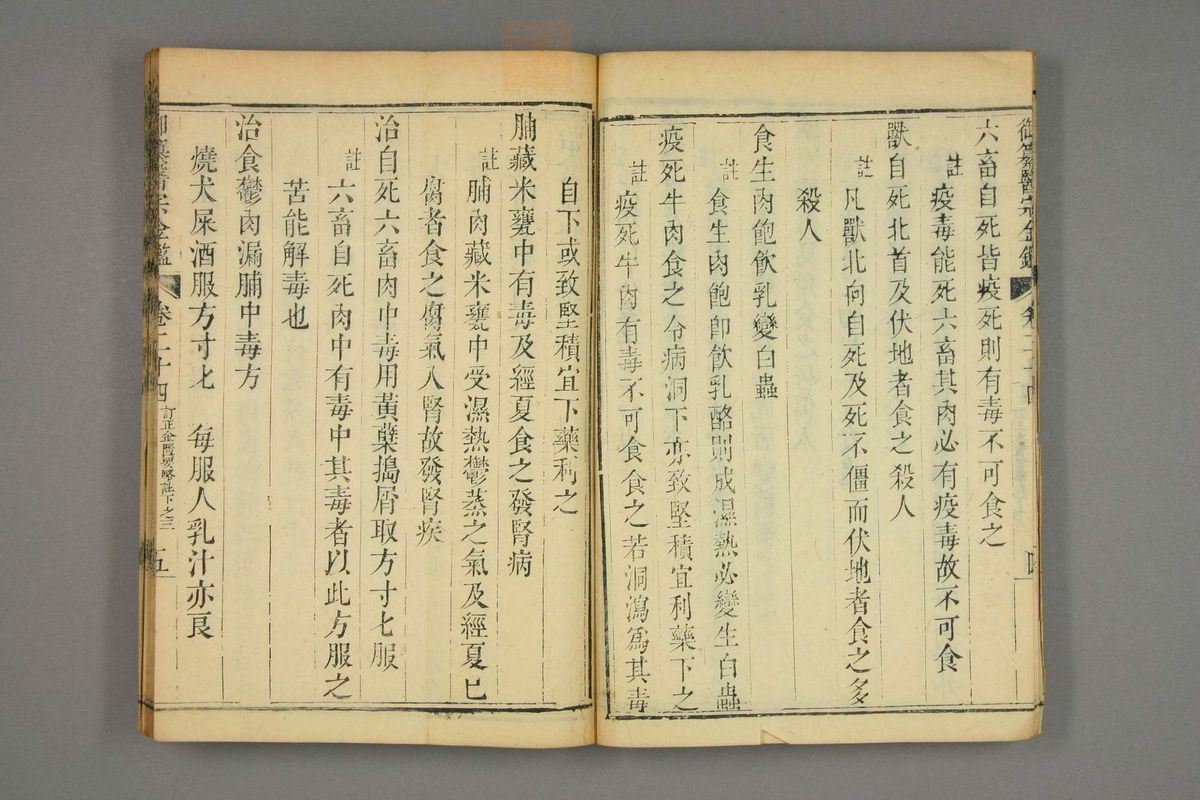 御纂醫宗金鑑
六畜自死皆疫死則有毒不可食之
註疫毒能死六畜其肉必有疫毒故不可食
獸自死北首及伏地者食之殺人
註凡獸北向自死及死不僵而伏地者食之多
殺人
食生肉飽飲乳變白蟲
註食生肉飽卽飲乳酪則成濕熱必變生白蟲
疫死牛肉食之令病洞下亦致堅積宜利藥下之
註疫死牛肉有毒不可食食之若洞瀉爲其毒
自下或致堅積宜下藥利之
脯藏米甕中有毒及經夏食之發腎病
註脯肉藏米甕中受濕熱鬱蒸之氣及經夏已
腐者食之腐氣入腎故發腎疾
治自死六畜肉中毒用黃蘗搗屑取方寸匕服
註六畜自死肉中有毒中其毒者以此方服之
苦能解毒也
治食鬱肉漏脯中毒方
燒犬屎酒服方寸匕 每服人乳汁亦良
醫宗金鑑 卷二十四 訂正金匱要略註下之三 五